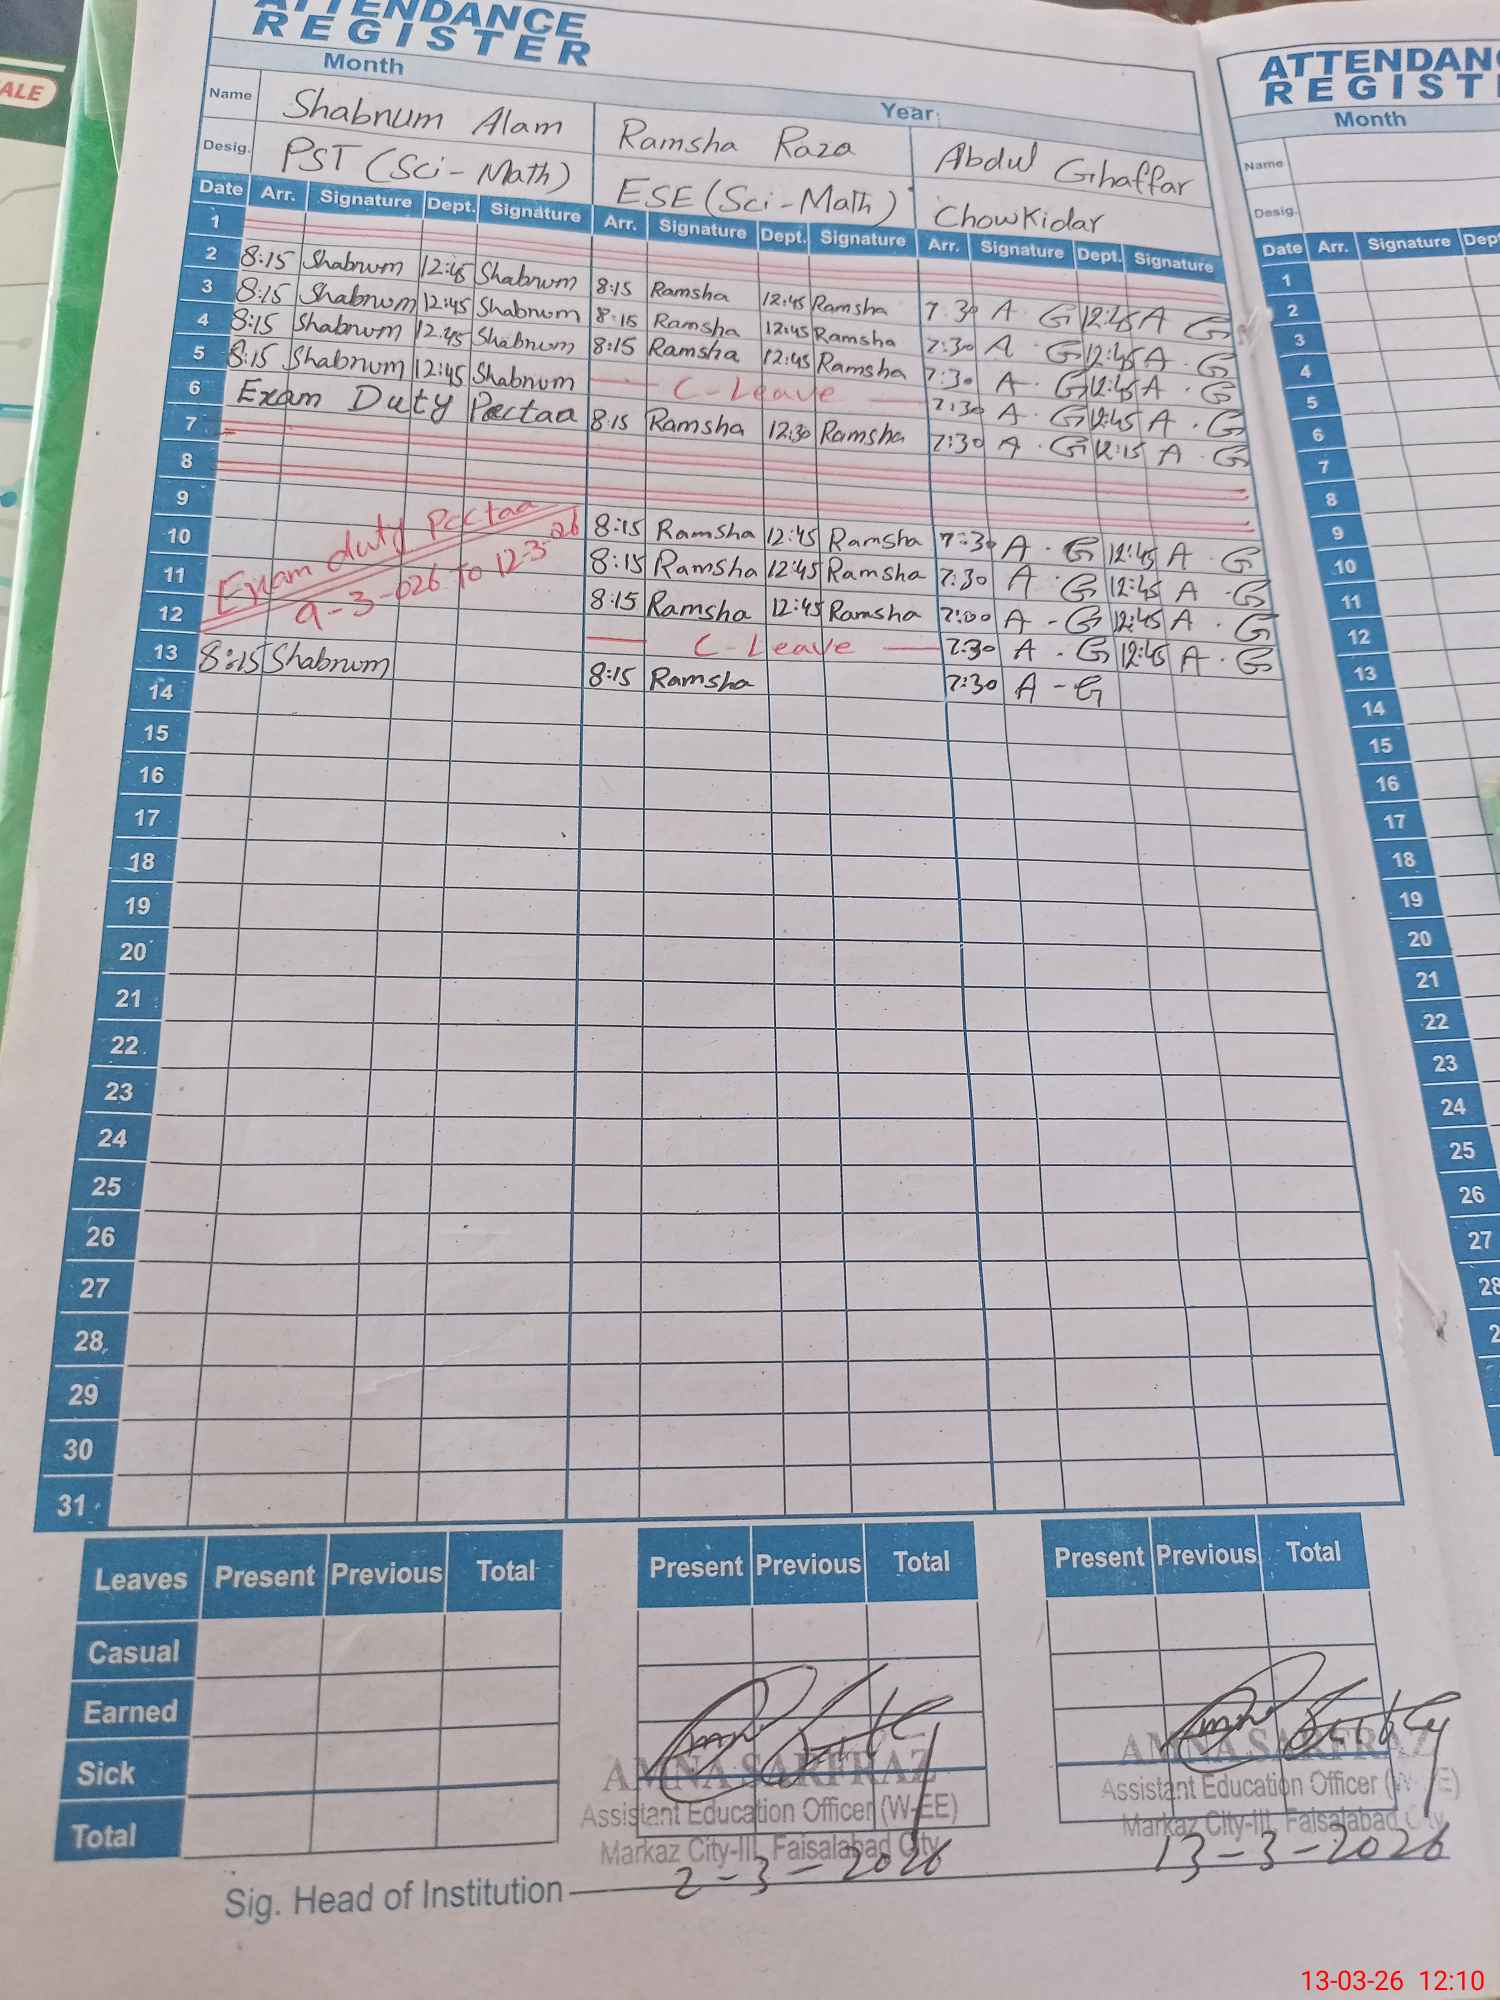 ALE
ATTENDANCE
REGISTER
Month
Year:
Name Shabnum Alam Ramsha Raza Abdul Ghaffar
Desig. PST (Sci-Math) ESE (Sci-Math) Chowkidar
Date Arr. Signature Dept. Signature Arr. Signature Dept. Signature Arr. Signature Dept. Signature
1
2 8:15 Shabnum 12:45 Shabnum 8:15 Ramsha 12:45 Ramsha 7:30 A. G 12:45 A G
3 8:15 Shabnum 12:45 Shabnum 8:15 Ramsha 12:45 Ramsha 7:30 A. G 12:45 A. G
4 8:15 Shabnum 12:45 Shabnum 8:15 Ramsha 12:45 Ramsha 7:30 A. G 12:45 A. G
5 8:15 Shabnum 12:45 Shabnum — C-Leave — 7:30 A. G 12:45 A. G
6 Exam Duty Pectaa 8:15 Ramsha 12:30 Ramsha 7:30 A. G 12:15 A. G
7
8
9 8:15 Ramsha 12:45 Ramsha 7:30 A. G 12:45 A. G
10 Exam duty Pectaa 8:15 Ramsha 12:45 Ramsha 7:30 A. G 12:45 A. G
11 9-3-026 to 12-3-26 8:15 Ramsha 12:45 Ramsha 7:00 A - G 12:45 A. G
12 — C-Leave — 7:30 A. G 12:45 A. G
13 8:15 Shabnum 8:15 Ramsha 7:30 A - G
14
15
16
17
18
19
20
21
22
23
24
25
26
27
28
29
30
31
Leaves Present Previous Total Present Previous Total Present Previous Total
Casual
Earned
Sick
Total
AMNA SARFRAZ
Assistant Education Officer (W-EE)
Markaz City-III, Faisalabad City
2-3-2026
AMNA SARFRAZ
Assistant Education Officer (W-EE)
Markaz City-III, Faisalabad City
13-3-2026
Sig. Head of Institution
ATTENDANC
REGIST
Month
Name
Desig.
Date Arr. Signature Dep
1
2
3
4
5
6
7
8
9
10
11
12
13
14
15
16
17
18
19
20
21
22
23
24
25
26
27
28
2
13-03-26 12:10